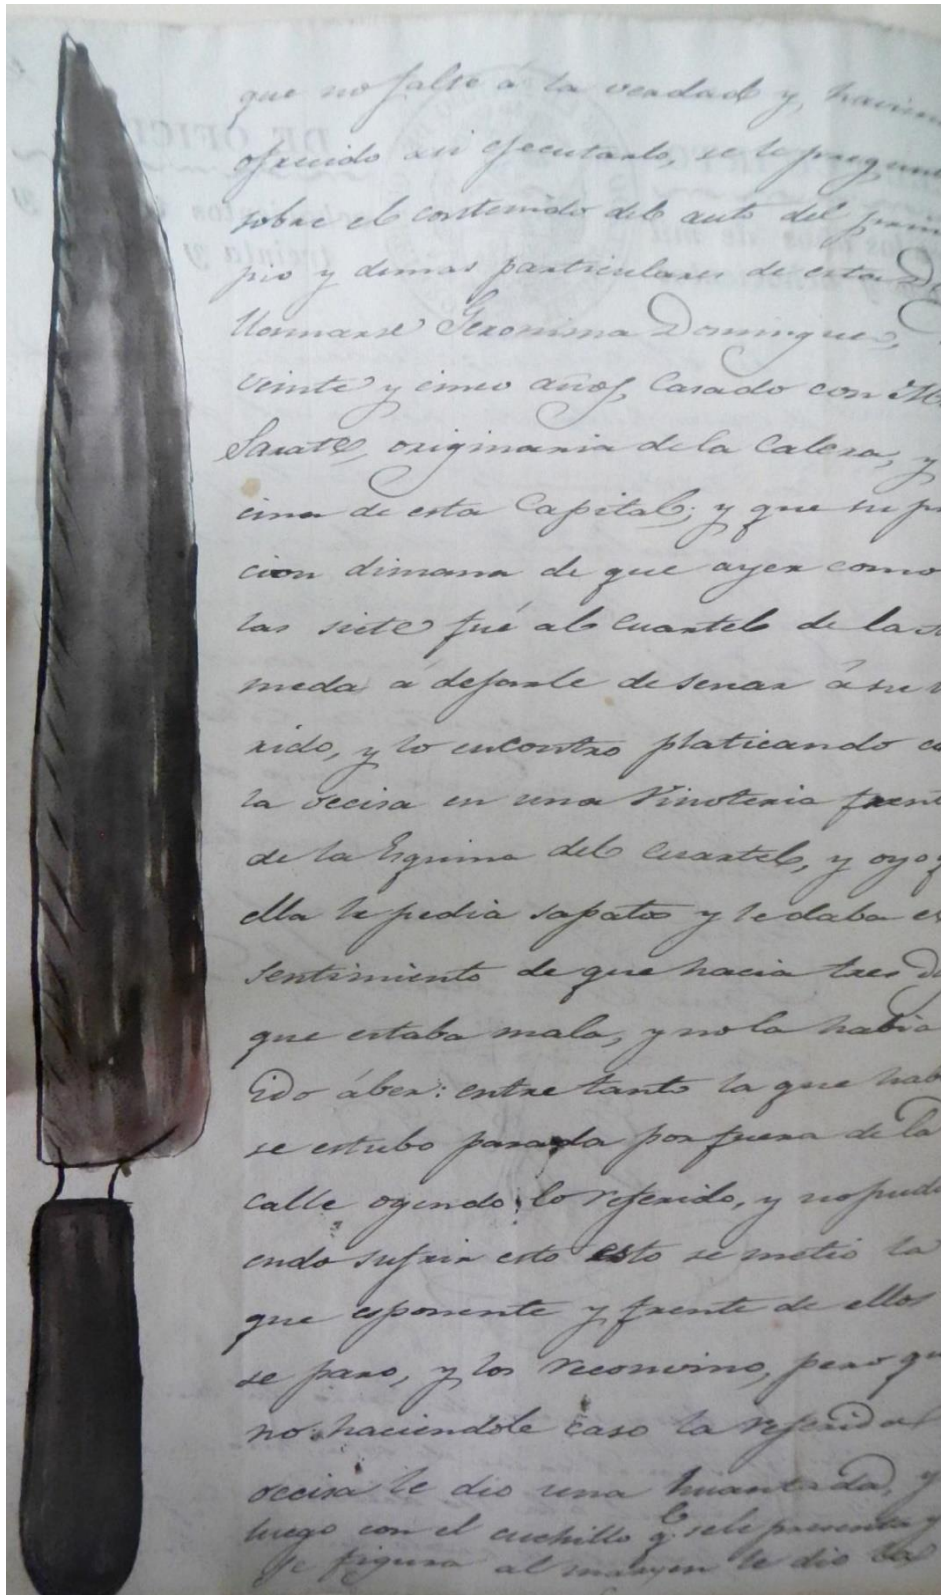 que no falte á la verdad y, havien
ofrecido asi ejecutarlo, se le pregun
sobre el contenido del auto del prin
pio y demas particulares de esta
llamarse Geronima Domingues,
veinte y cinco años, Casado con
Sarate, originaria de la Calera, y
cina de esta Capital; y que su pr
cion dimana de que ayer como
las siete fué al Cuartel de la
meda á dejarle de senar á su
rido, y lo encontro platicando co
la occisa en una Vinoteria frent
de la Esquina del Cuartel, y oyo q
ella le pedia sapatos y le daba el
sentimiento de que hacia tres
que estaba mala, y no la habia
ido áber: entre tanto la que hab
se estubo parada por fuera de la
calle oyendo lo referido, y no pudi
endo sufrir esto esto se metio la
que esponente y frente de ellos
se paro, y los reconvino, pero qu
no haciendole caso la referida
occisa le dio una huantada, y
luego con el cuchillo q.e se le presenta y
se figura al margen le dio la